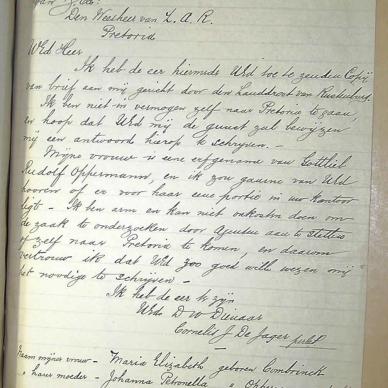 Den Weesheer van Z. A. R.
Pretoria
WEd Heer
Ik heb de eer hiermede UEd toe te zenden Copij
van brief aan mij gericht door den Landdrost van Rustenburg.
Ik ben niet in vermogen zelf naar Pretoria te gaan,
en hoop dat UEd mij de gunst zal bewijzen
mij een antwoord hierop te schrijven. –
Mijne vrouw is eene erfgename van Gottlieb
Rudolf Oppermann, en ik zou gaarne van UEd
hooren of er voor haar eene portie in uw kantoor
ligt – Ik ben arm en kan niet onkosten doen om
de zaak te onderzoeken door Agenten aan te stellen
of zelf naar Pretoria te komen, en daarom
vertrouw ik dat UEd zoo goed wille wezen mij
het noodige te schrijven –
Ik heb de eer te zijn
UEds D W Dienaar
Cornelis J. De Jager
Naam mijner vrouw – Maria Elizabeth geboren Combrinck
" harer moeder – Johanna Petronella "